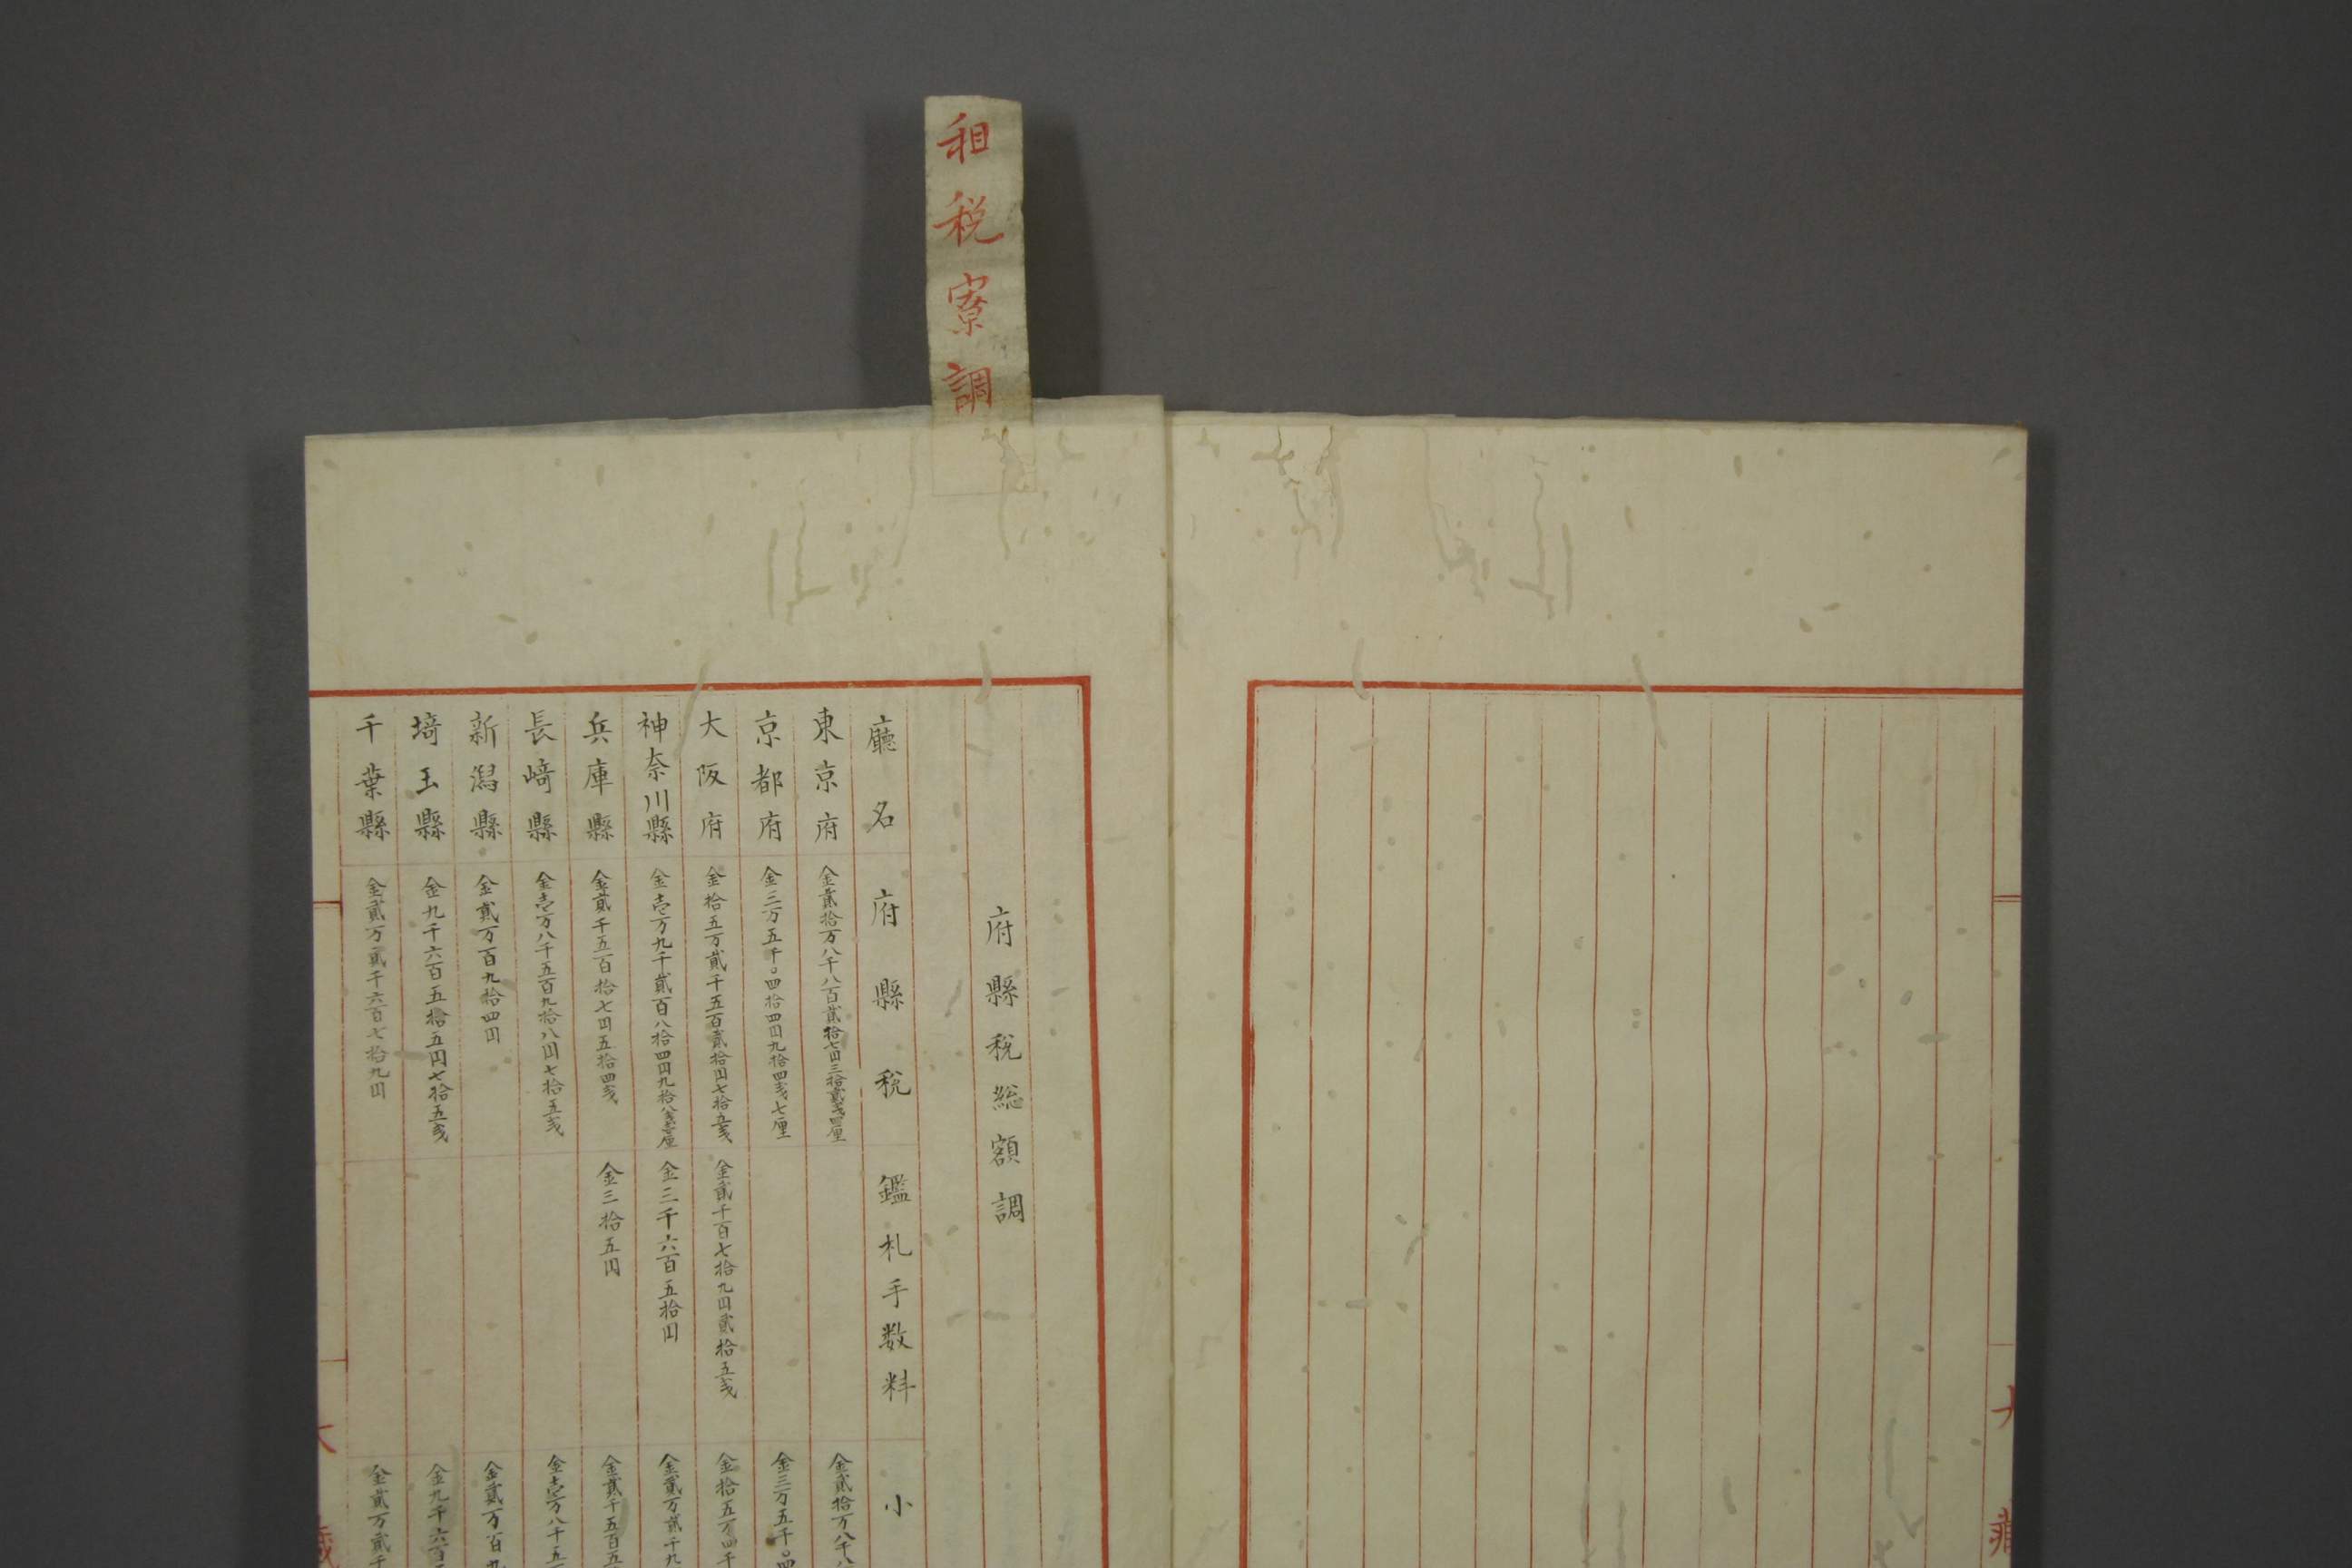 租税寮調
府縣税総額調
廳名 府縣税 鑑札手数料 小
東京府 金貳拾万八千八百貳拾七円三拾貳戋四厘 金貳拾万八千八
京都府 金三万五千〇四拾四円九拾四戋七厘 金三万五千〇四
大阪府 金拾五万貳千五百貳拾円七拾五戋 金貳千百七拾九円貳拾五戋 金拾五万四千
神奈川縣 金壱万九千貳百八拾四円九拾八戋壱厘 金三千六百五拾円 金貳万貳千九
兵庫縣 金貳千五百拾七円五拾四戋 金三拾五円 金貳千五百五
長﨑縣 金壱万八千五百九拾八円七拾五戋 金壱万八千五
新潟縣 金貳万百九拾四円 金貳万百九
埼玉縣 金九千六百五拾五円七拾五戋 金九千六百
千葉縣 金貳万貳千六百七拾九円 金貳万貳千
大
蔵